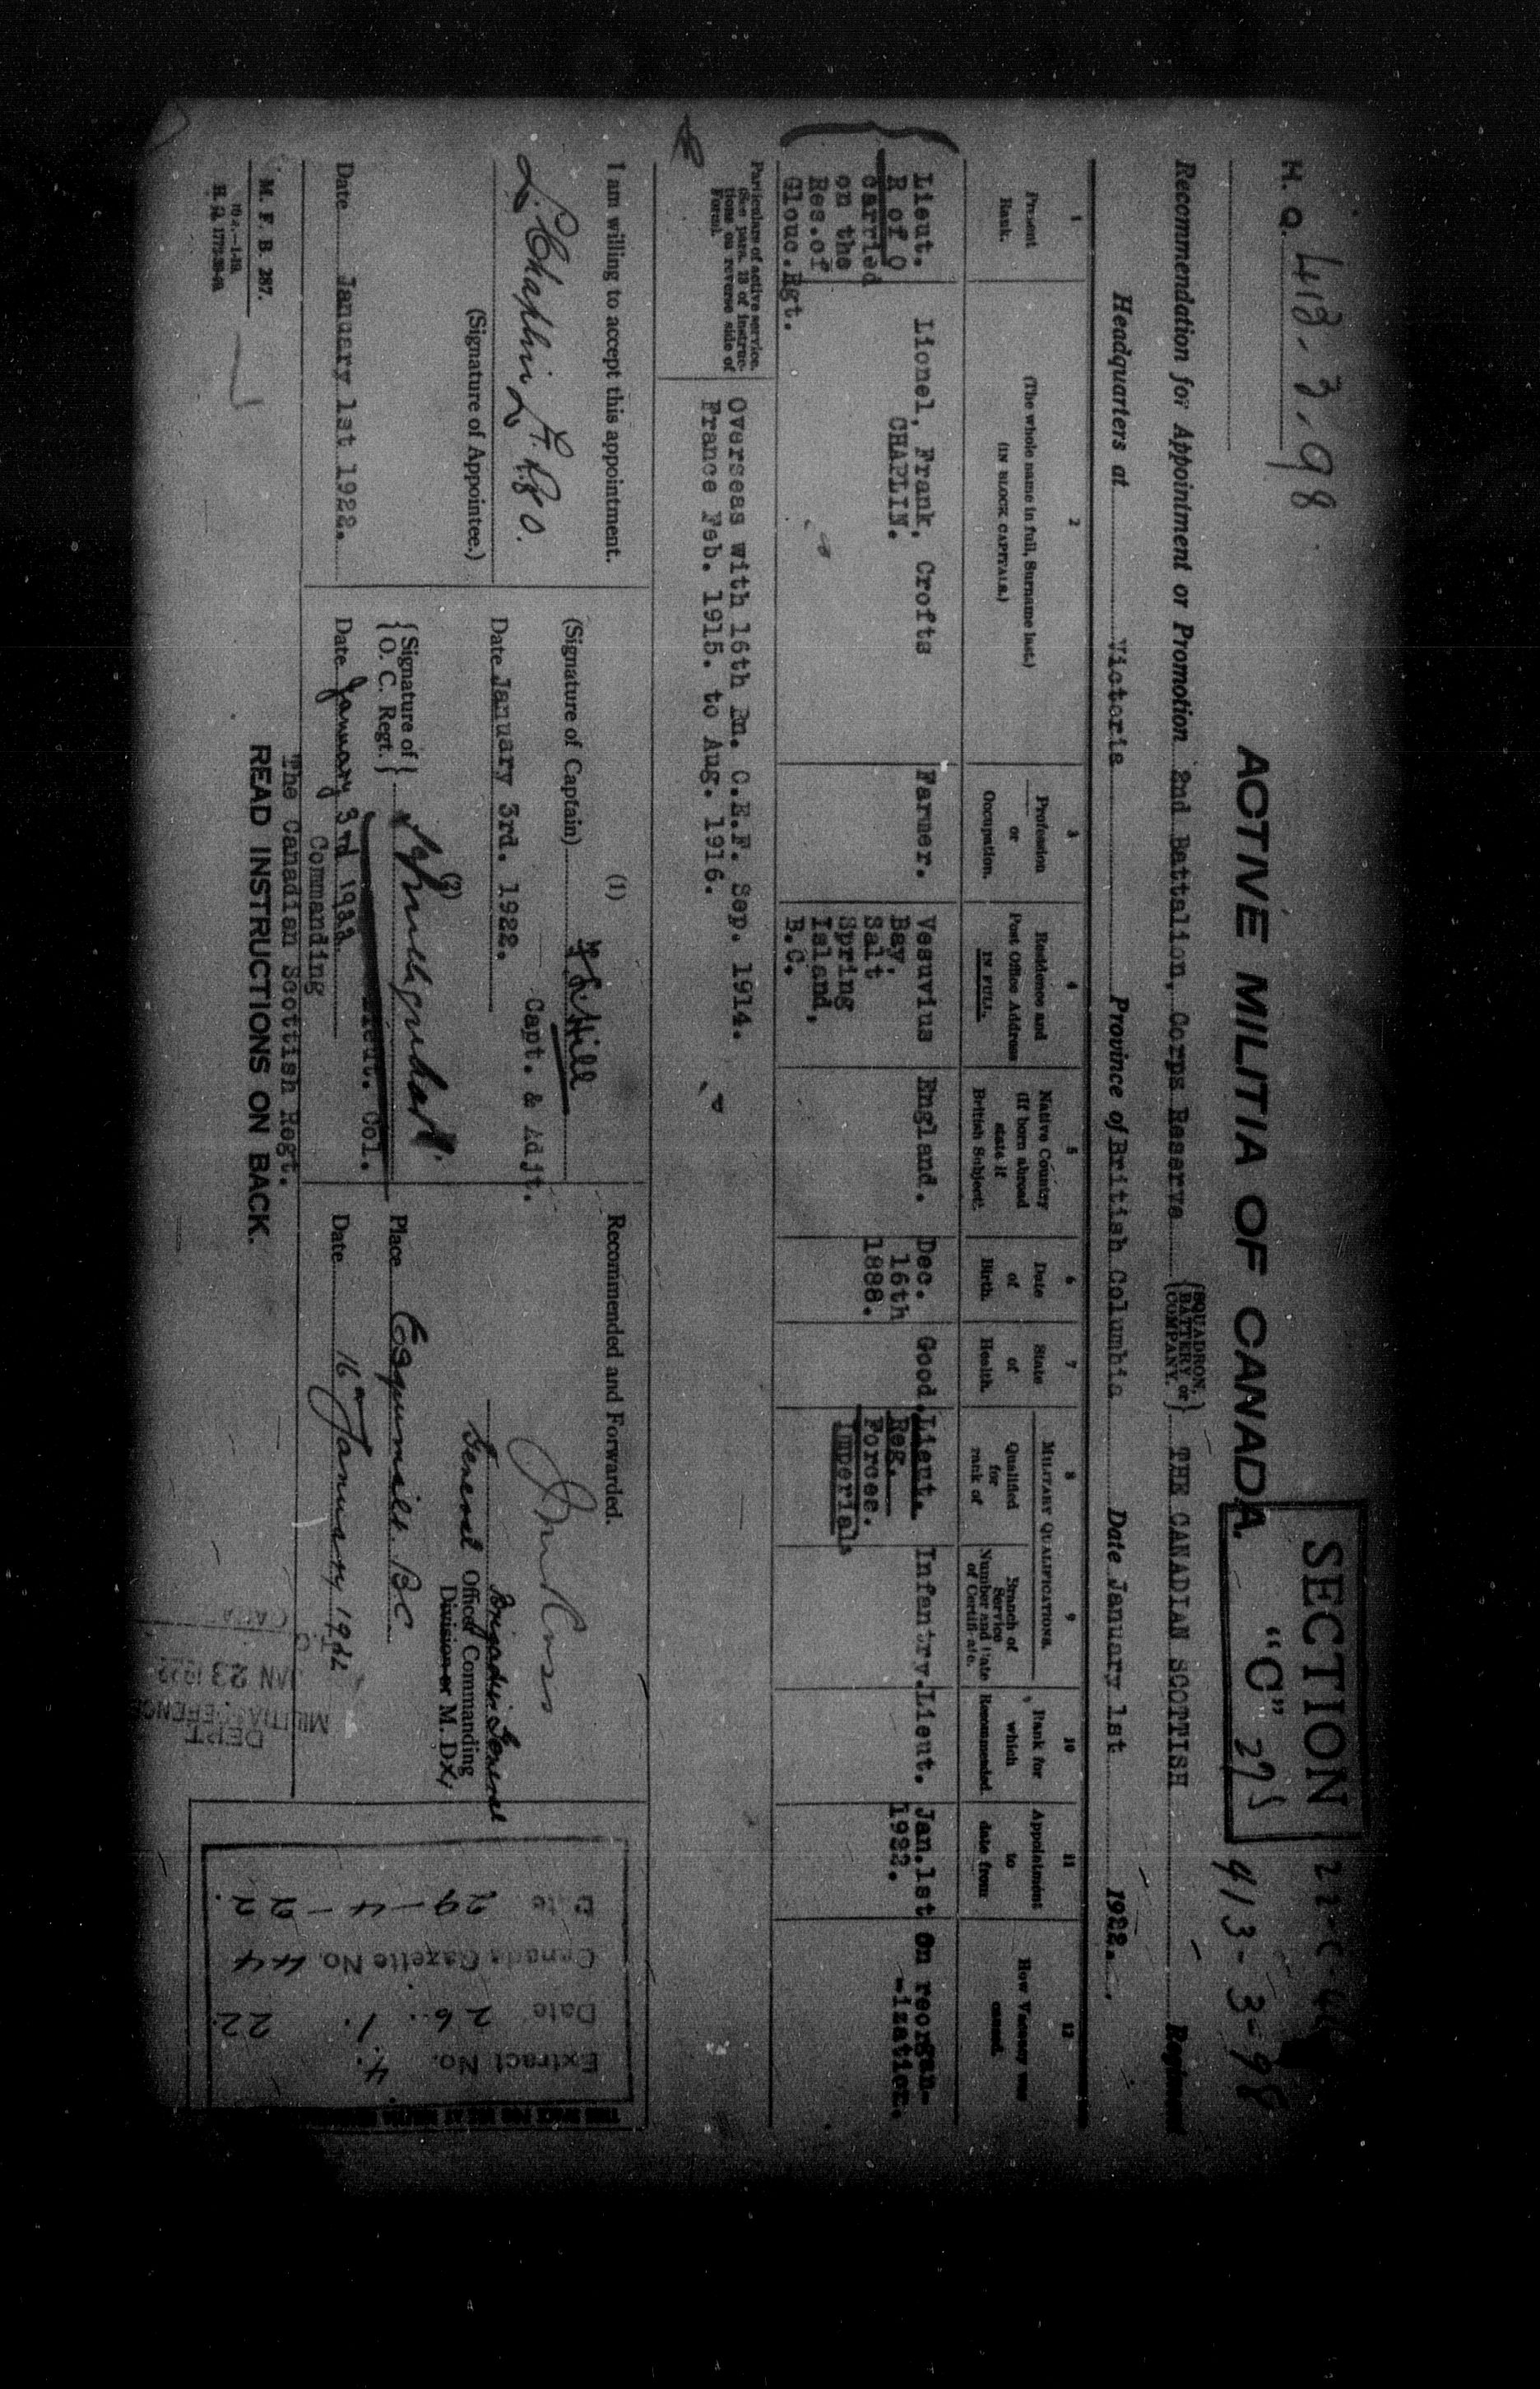 H. Q. 413-3-98
SECTION
"C" 275
413-3-98
ACTIVE MILITIA OF CANADA.
Recommendation for Appointment or Promotion 2nd Battalion, Corps Reserve {SQUADRON, BATTERY or COMPANY.} THE CANADIAN SCOTTISH Regiment
Headquarters at Victoria Province of British Columbia Date January 1st 1922.
1
Present
Rank.
2
(The whole name in full, Surname last.)
(IN BLOCK CAPITALS.)
3
Profession
or
Occupation.
4
Residence and
Post Office Address
IN FULL.
5
Native Country
(If born abroad
state if
British Subject).
6
Date
of
Birth.
7
State
of
Health.
MILITARY QUALIFICATIONS.
8
Qualified
for
rank of
9
Branch of
Service
Number and Date
of Certificate.
10
Rank for
which
Recommended.
11
Appointment
to
date from
12
How Vacancy was
caused.
Lieut.
R of O
carried
on the
Res.of
Glouc.Rgt.
Lionel, Frank, Crofts
CHAPLIN.
Farmer.
Vesuvius
Bay,
Salt
Spring
Island,
B.C.
England.
Dec.
16th
1888.
Good.
Lieut.
Reg.
Forces.
Imperials
Infantry.
Lieut.
Jan.1st
1922.
On reorgan-
-ization.
Particulars of active service.
(See para. 13 of instruc-
tions on reverse side of
Form).
Overseas with 16th Bn. C.E.F. Sep. 1914.
France Feb. 1915. to Aug. 1916.
I am willing to accept this appointment.
L. Chaplin Lt. R of O.
(Signature of Appointee.)
Date January 1st 1922.
(1)
(Signature of Captain) Hill
Capt. & Adjt.
Date January 3rd. 1922.
(2)
{Signature of
O. C. Regt.}
Lieut. Col.
Date January 3rd 1922
Commanding
The Canadian Scottish Regt.
Recommended and Forwarded.
J M Ross
Brigadier General
General Officer Commanding
Division or M. D. XI
Place Esquimalt. BC
Date 16th January 1922
M. F. B. 287.
READ INSTRUCTIONS ON BACK.
DEPT
MILITIA & DEFENCE
JAN 23 1922
Extract No. 4.
Date 26. 1. 22.
Canada Gazette No. 44
Date 29-4-22.